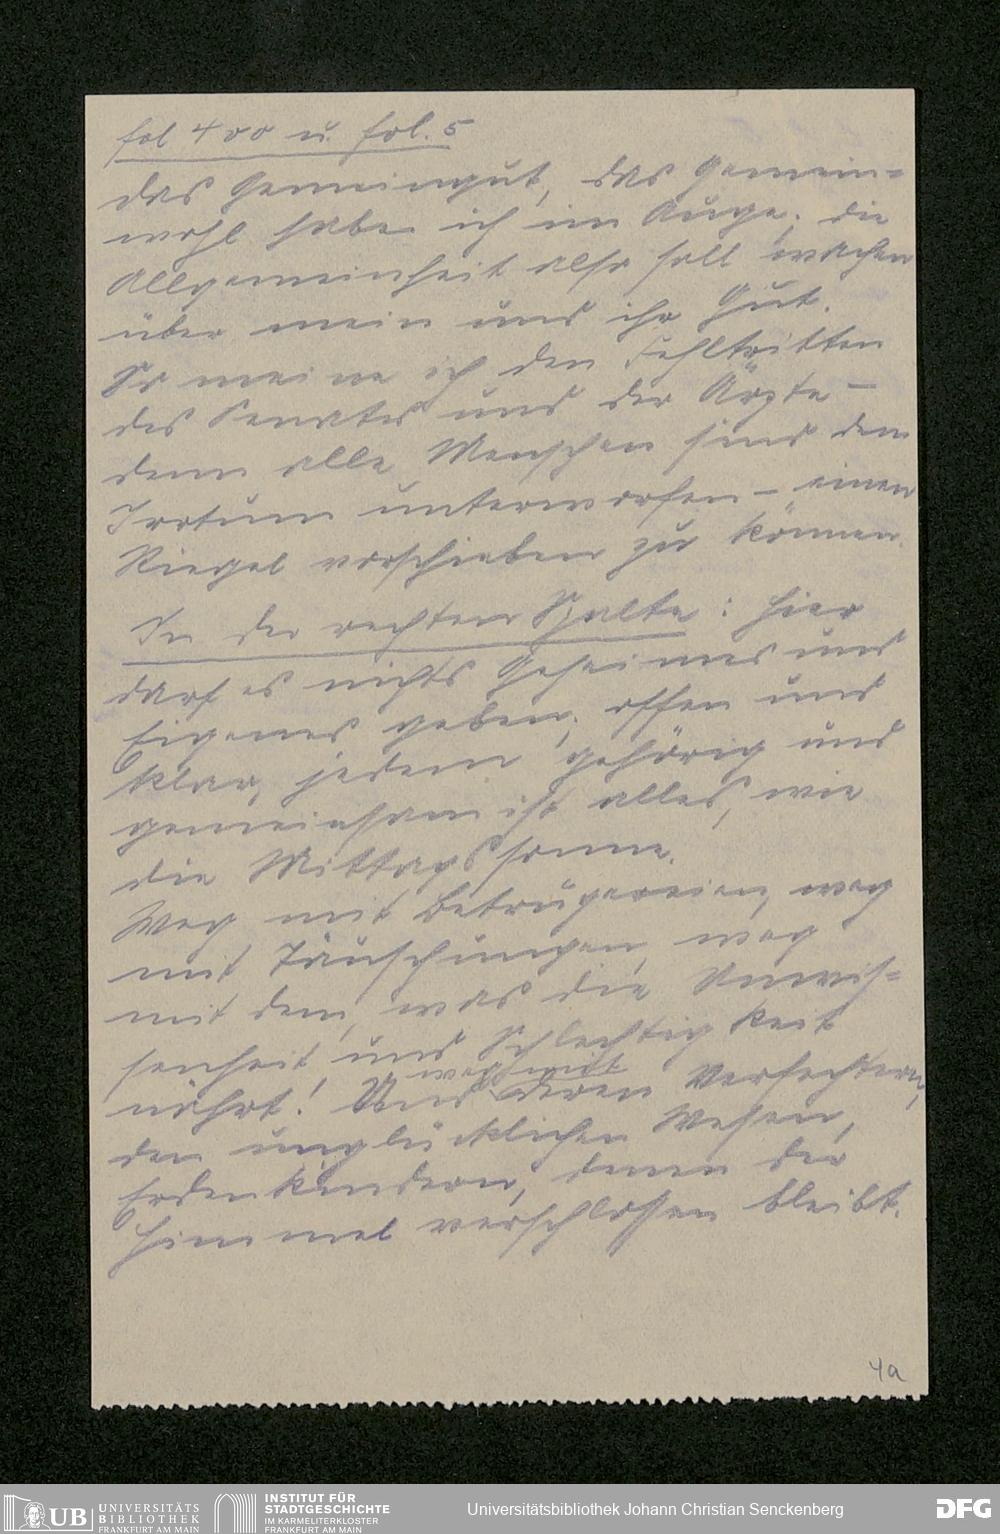 fol 4 vo u. fol. 5
das Gemeingut, das Gemein-
wohl habe ich im Auge; die
Allgemeinheit also soll wachen
über mein und ihr Gut.
So meine ich den Fehltritten
des Senates und der Ärzte –
denn alle Menschen sind dem
Irrtum unterworfen – einen
Riegel vorschieben zu können.
In der rechten Spalte: Hier
darf es nichts Geheimes und
Eigenes geben; offen und
klar, jedem gehörig und
gemeinsam ist alles, wie
die Mittagssonne.
Weg mit Betrügereien, weg
mit Täuschungen, weg
mit dem, was die Unwis-
senheit und Schlechtigkeit
nährt! Und weg mit deren Verfechtern,
den unglücklichen Wesen,
Erdenkindern, denen der
Himmel verschlossen bleibt.
4a
UB UNIVERSITÄTS
BIBLIOTHEK
FRANKFURT AM MAIN
INSTITUT FÜR
STADTGESCHICHTE
IM KARMELITERKLOSTER
FRANKFURT AM MAIN
Universitätsbibliothek Johann Christian Senckenberg
DFG